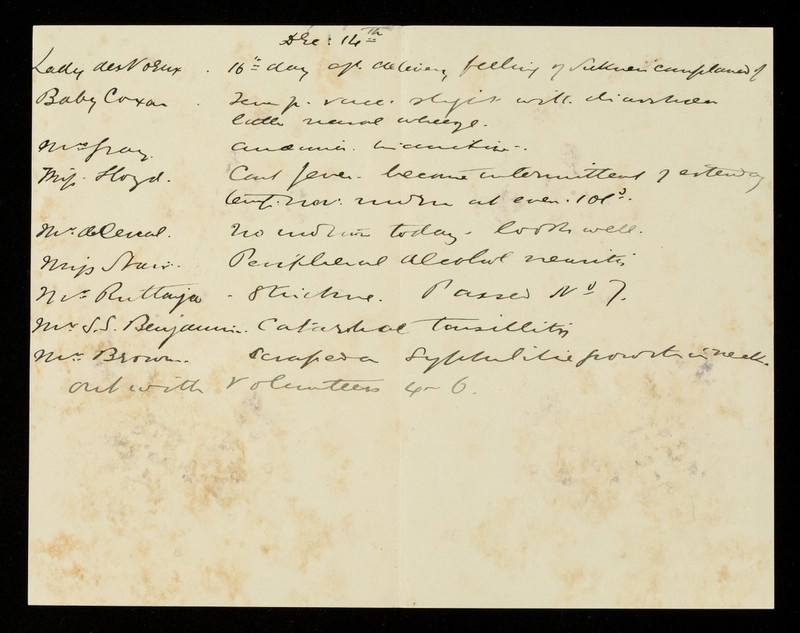 Dec: 14th
Lady des Voeux . 16th day aft. delivery feeling of sickness complained of
Baby Coxon . Temp. vacc. slight with diarrhoea
little nasal wheeze.
Mrs Gray. anaemia.
Miss Lloyd. Cont fever. become intermittent yesterday
temp. nor. mdrn at even. 101°.
no today. looks well.
Miss Peripheral alcohol neuritis
Mrs Ruttonja - Stricture. Passed No 7.
Mr S.S. Benjamin. Catarrhal Tonsillitis
Mr Brown. Scraped a Syphilitic growth in neck
out with Volunteers 4-6.